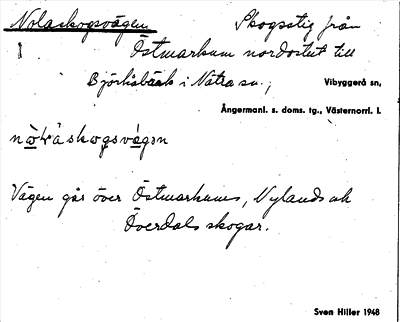 Nolaskogsvägen Skogsstig från
Östmarkum nordostut till
Björkåbäck i Nätra sn.,
Vibyggerå sn,
Ångermanl. s. doms. tg., Västernorrl. l.
Vägen går över Östmarkums, Nylands och
Överdals skogar.
Sven Hiller 1948